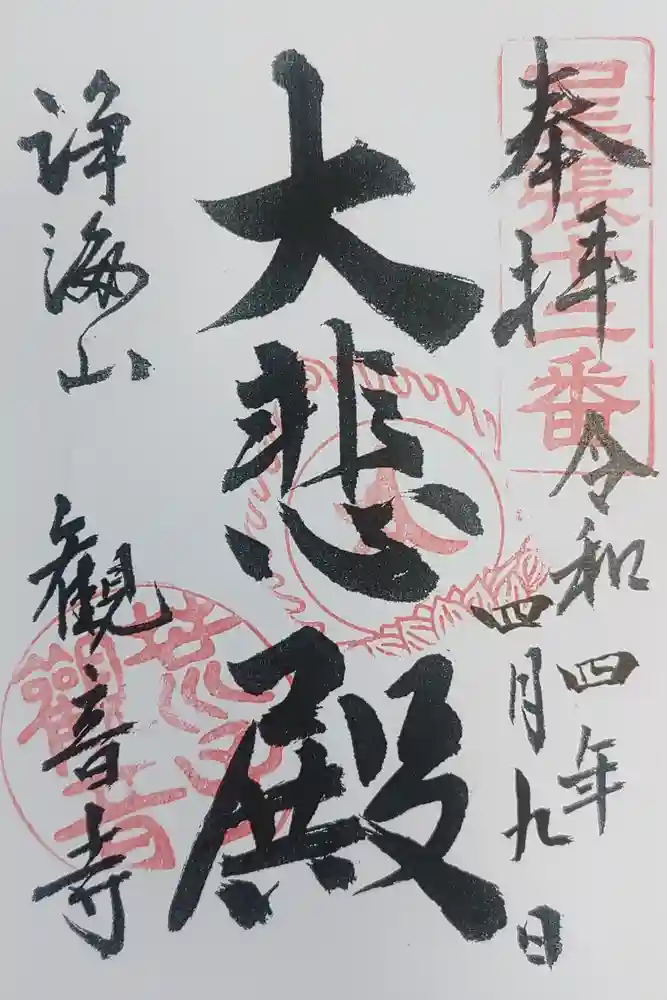 奉拝
令和四年
四月九日
大悲殿
浄海山
観音寺
尾張
番
荒子
觀音